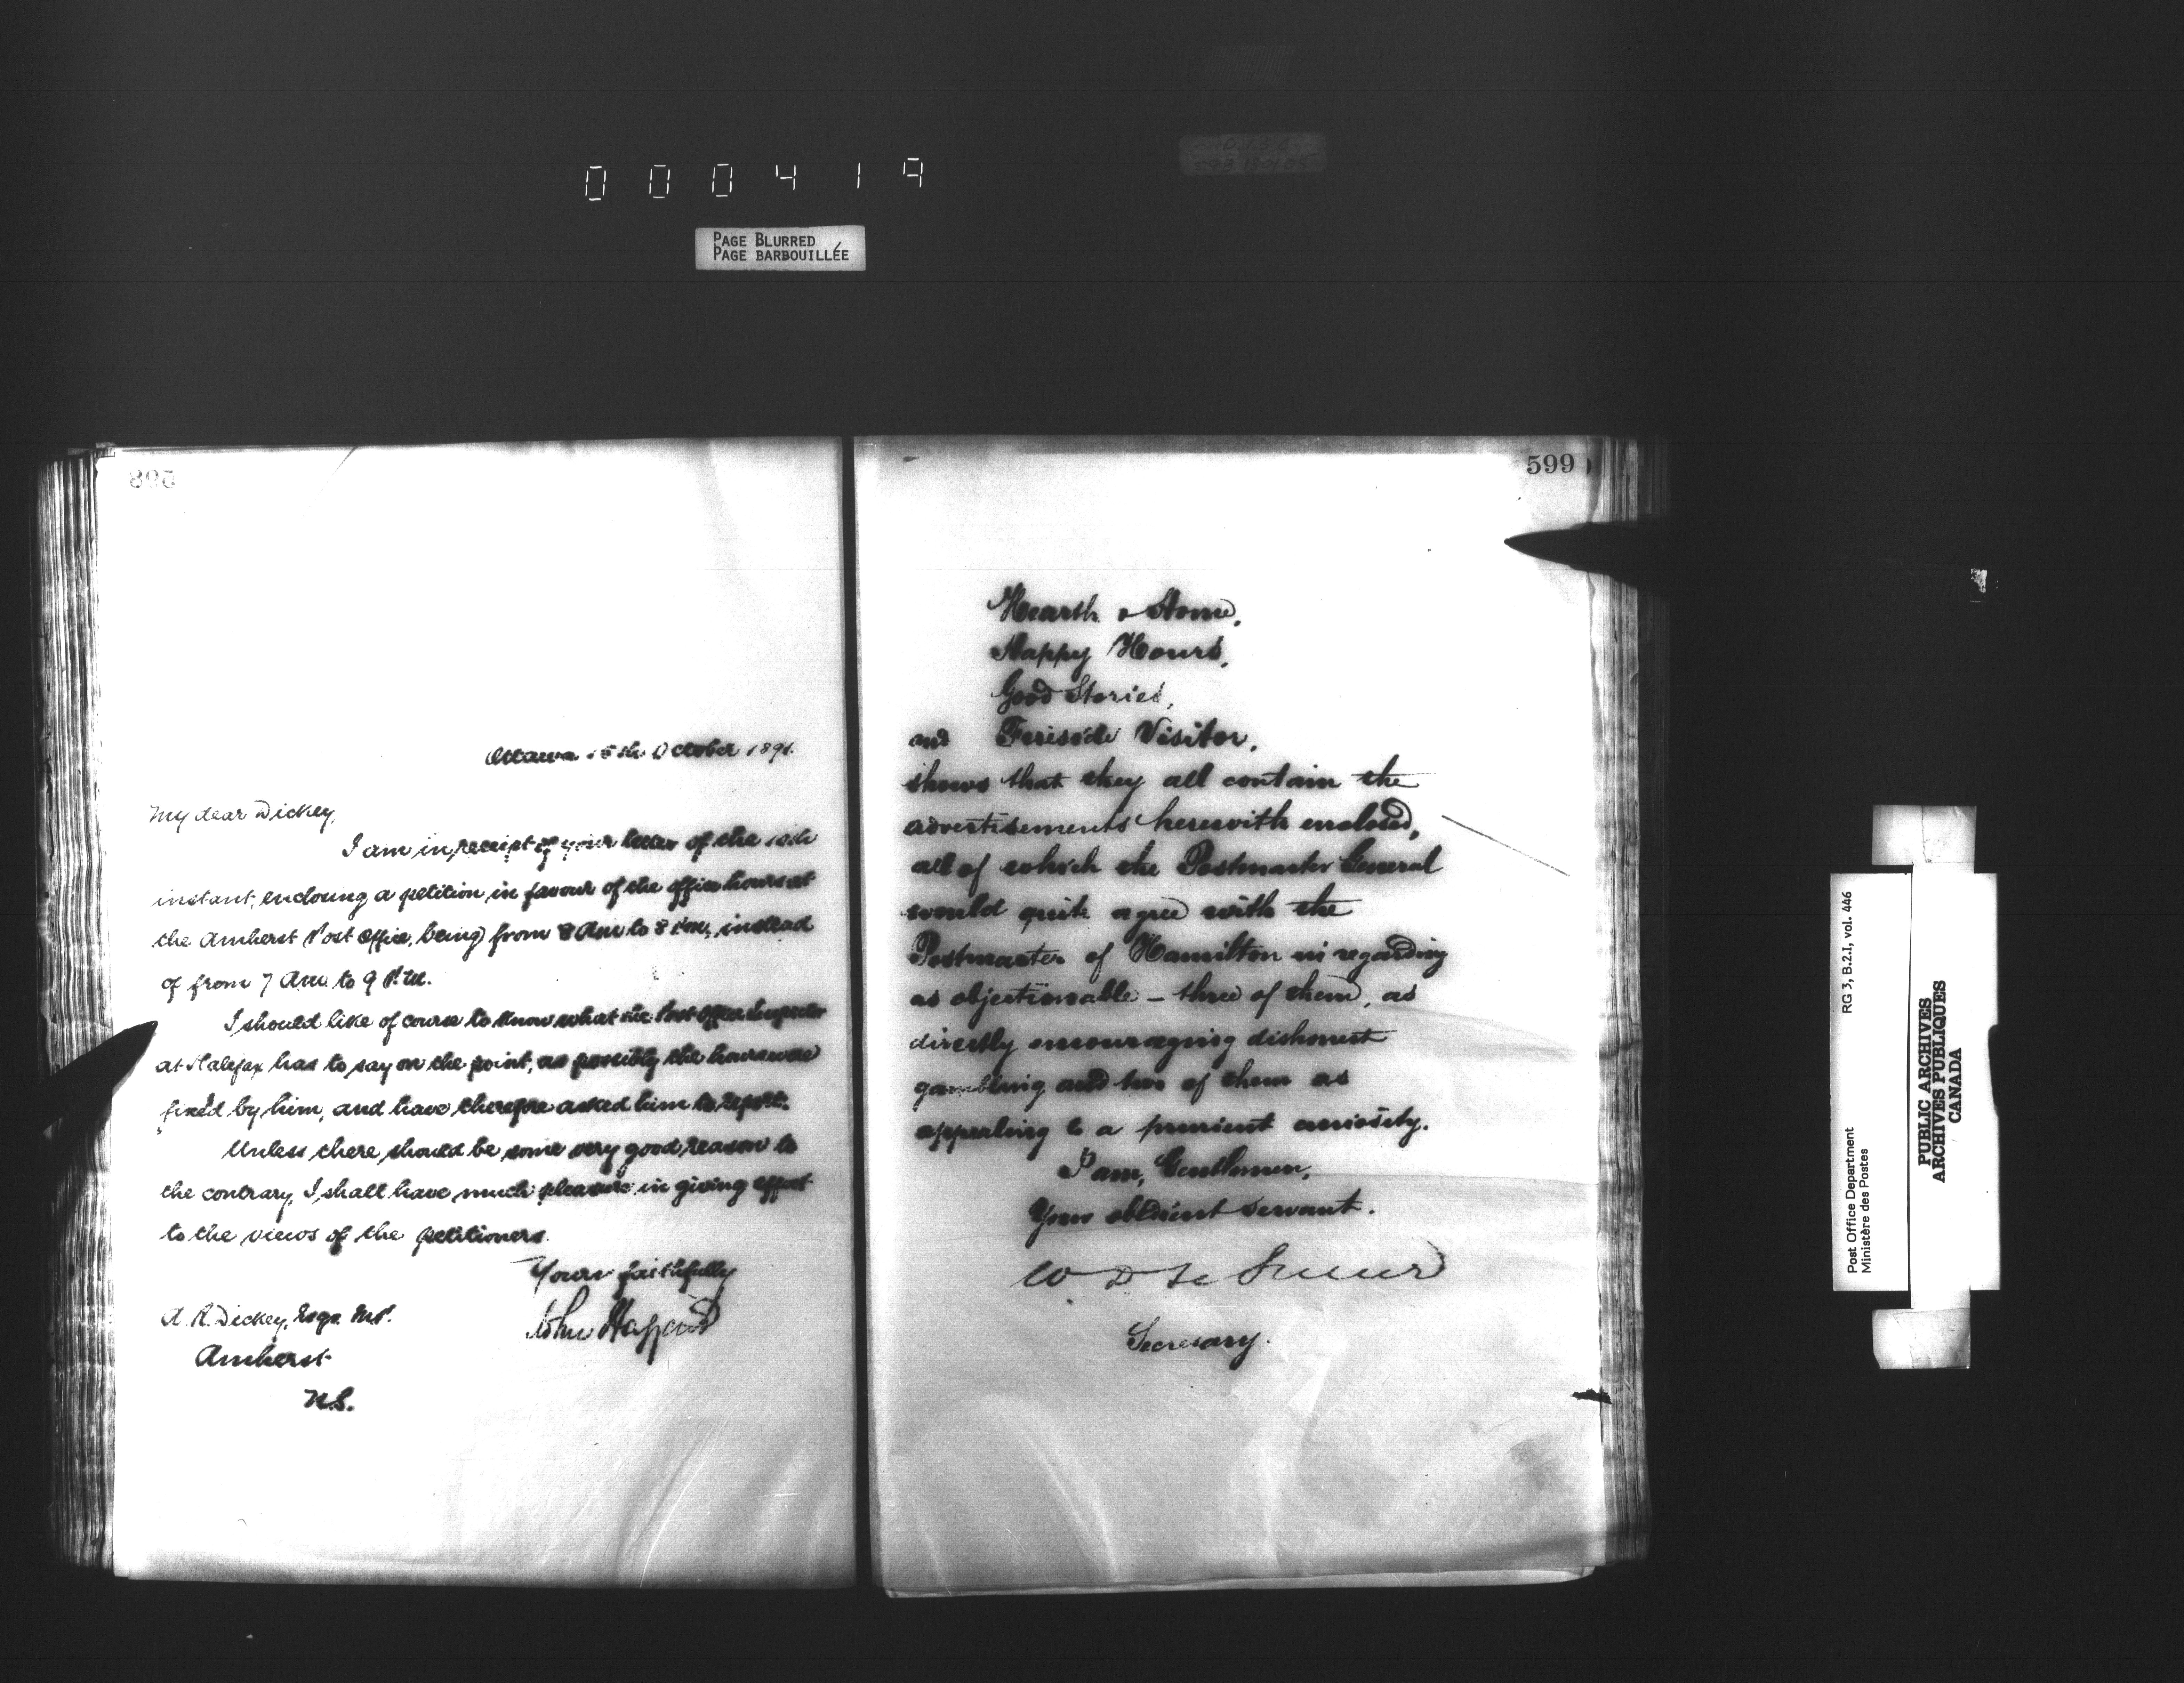 000419
PAGE BLURRED
PAGE BARBOUILLÉE
Ottawa 15th October 1891.
My dear Dickey,
I am in receipt of your letter of the 10th
instant, enclosing a petition in favour of the office hours at
the Amherst Post Office, being from 8 Am to 8 Pm, instead
of from 7 Am to 9 P.M.
I should like of course to know what the Post Office Inspector
at Halifax has to say on the point, as possibly the hours were
fixed by him, and have therefore asked him to report.
Unless there should be some very good reason to
the contrary, I shall have much pleasure in giving effect
to the views of the petitioners.
Yours faithfully
John Haggard
A. R. Dickey, Esqr. M.P.
Amherst
N.S.
599
Hearth & Home,
Happy Hours,
Good Stories,
and Fireside Visitor,
shows that they all contain the
advertisements herewith enclosed,
all of which the Postmaster General
would quite agree with the
Postmaster of Hamilton in regarding
as objectionable - three of them, as
directly encouraging dishonest
gambling and two of them as
appealing to a prurient curiosity.
I am, Gentlemen,
Your obedient servant.
W D Le Sueur
Secretary.
RG 3, B.2.I, vol. 446
Post Office Department
Ministère des Postes
PUBLIC ARCHIVES
ARCHIVES PUBLIQUES
CANADA